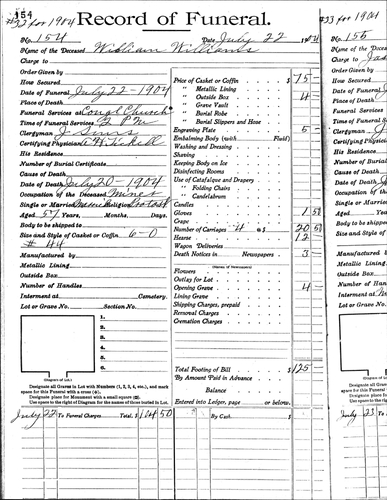 154
#32 for 1904
Record of Funeral.
No. 154 Date July 22 1904
Name of the Deceased William Williams
Charge to
Order Given by
How Secured
Date of Funeral July 22 - 1904
Place of Death
Funeral Services at Congl Church
Time of Funeral Services 2 P.M
Clergyman J Sims
Certifying Physician
His Residence
Number of Burial Certificate
Cause of Death
Date of Death July 20 - 1904
Occupation of the Deceased Miner
Single or Married Religion
Aged 57 Years, Months, Days.
Body to be shipped to
Size and Style of Casket or Coffin 6-0
# 44
Manufactured by
Metallic Lining
Outside Box
Number of Handles
Interment at Cemetery.
Lot or Grave No. Section No.
1
2
3
4
(Diagram of Lot.)
Designate all Graves in Lot with Numbers (1, 2, 3, 4, etc.), and mark
space for this Funeral with a cross (+).
Designate place for Monument with a small square (□).
Use space to the right of Diagram for the names of those buried in Lot.
Price of Casket or Coffin $ 75 -
" Metallic Lining
" Outside Box 4 -
" Grave Vault
" Burial Robe
" Burial Slippers and Hose
Engraving Plate 5 -
Embalming Body (with Fluid)
Washing and Dressing
Shaving
Keeping Body on Ice
Disinfecting Rooms
Use of Catafalque and Drapery
" Folding Chairs
" Candelabrum
Candles
Gloves 1 50
Crape
Number of Carriages 4 $ 20 50
Hearse 12
Wagon Deliveries
Death Notices in Newspapers 3 -
(Names of Newspapers)
Flowers
Outlay for Lot
Opening Grave 4 -
Lining Grave
Shipping Charges, prepaid
Removal Charges
Cremation Charges
Total Footing of Bill $ 125 -
By Amount Paid in Advance
Balance
Entered into Ledger, page or below.
July 22 To Funeral Charges Total, $ 124 50
By Cash $
#33 for 1904
No. 155
Name of the
Charge to
Order Given
How Secured
Date of Fu
Place of De
Funeral Se
Time of Fu
Clergyman
Certifying
His Res
Number of
Cause of D
Date of De
Occupation
Single or M
Aged
Body to be
Size and St
Manufactu
Metallic L
Outside Bo
Number of
Interment
Lot or Gra
Designa
space for th
Designa
Use spac
July 23